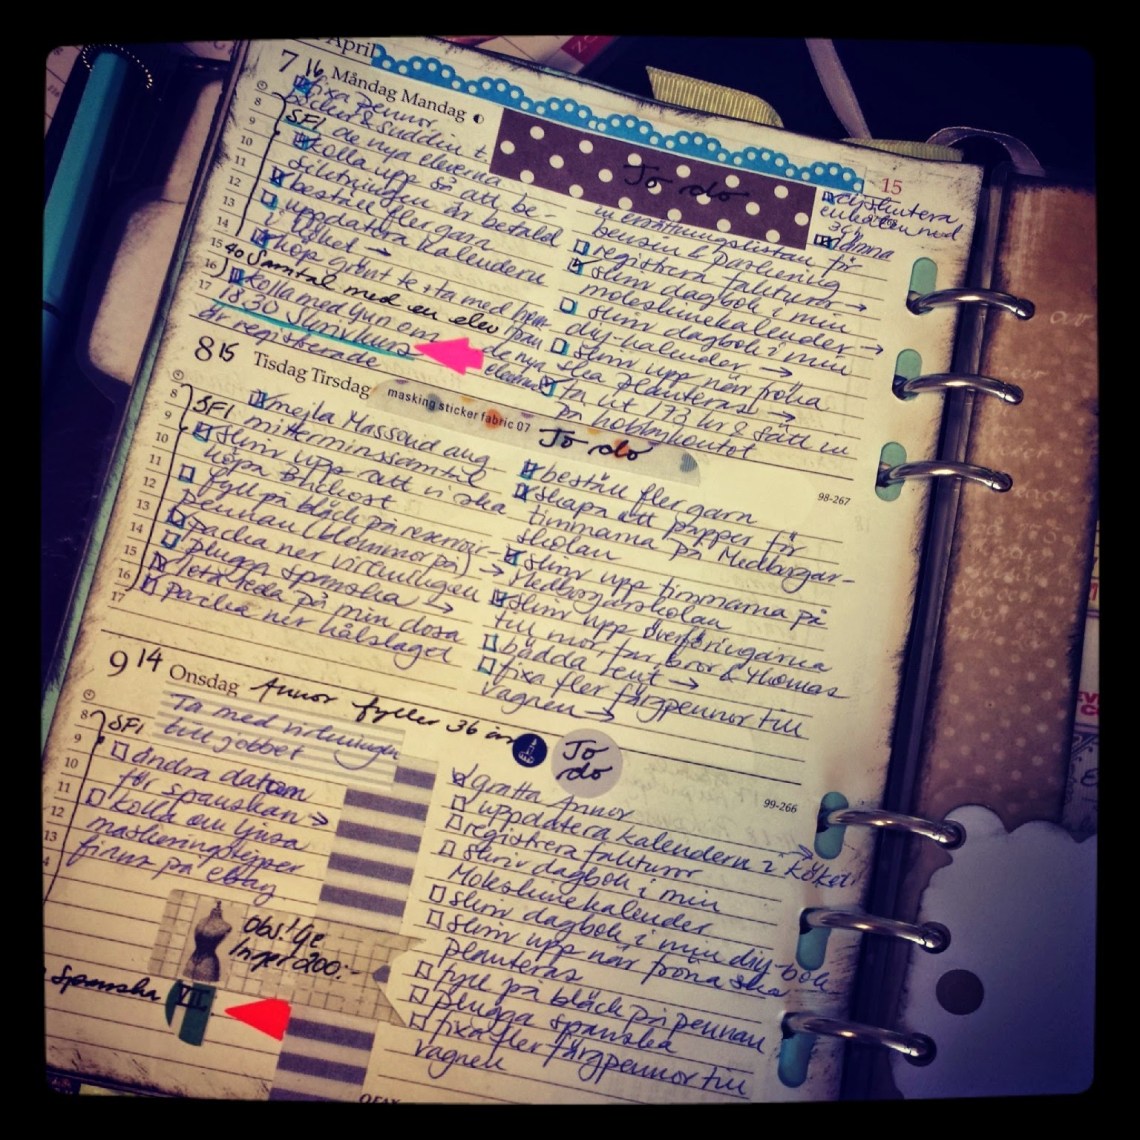 April
15
7 16 Måndag Mandag
To do
8
9
10
11
12
13
14
15
16
17
fixa pennor
block & suddin t.
SFI de nya eleverna
kolla upp så att be-
ställningen är betald
beställ fler garn
uppdatera kalendern
i köket →
köp grönt te + ta med hem
40 Samtal med en elev från
kolla med Lyn om de nya eleverna
18.30 Skrivkurs
är registrerade
bensin & parkering
registrera fakturor →
skriv dagbok i min
moleskinekalender →
skriv dagbok i min
diy-kalender →
skriv upp när fröna
ska planteras →
ta ut 173 kr & sätt in
på hobbykontot
enkäten med
lämna
8 15 Tisdag Tirsdag
masking sticker fabric 07
To do
98-267
8
9
10
11
12
13
14
15
16
17
SFI mejla Massoud ang
mitterminssamtal
skriv upp att vi ska
köpa
fyll på bläck på reservoar-
pennan (blommor på) →
packa ner virkningen
plugga spanska →
leta reda på min dosa
packa ner hålslaget
beställ fler garn
skapa ett papper för
timmarna på Medborgar-
skolan
skriv upp timmarna på
Medborgarskolan
skriv upp överföringarna
till mor, far, bror & Thomas
bädda rent →
fixa fler färgpennor till
vagnen →
9 14 Onsdag Annor fyller 36 år
To do
99-266
8
9
10
11
12
13
SFI
Ta med virkningen
till jobbet
ändra datum
för spanskan →
kolla om ljusa
maskeringstejper
finns på ebay
Obs! Ge
Inger 200:-
Spanska
VII
gratta Annor
uppdatera kalendern i köket
registrera fakturor
skriv dagbok i min
Moleskinekalender
skriv dagbok i min diy-bok
skriv upp när fröna ska
planteras
fyll på bläck på pennan
plugga spanska
fixa fler färgpennor till
vagnen